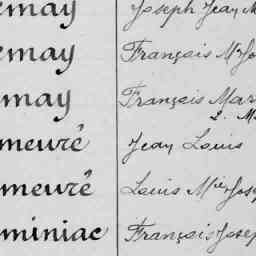 emay Joseph Jean M
emay François Mie Jo
emay François Mar
2. M
meuré Jean Louis
meuré Louis Mie Jose
miniac François Josep